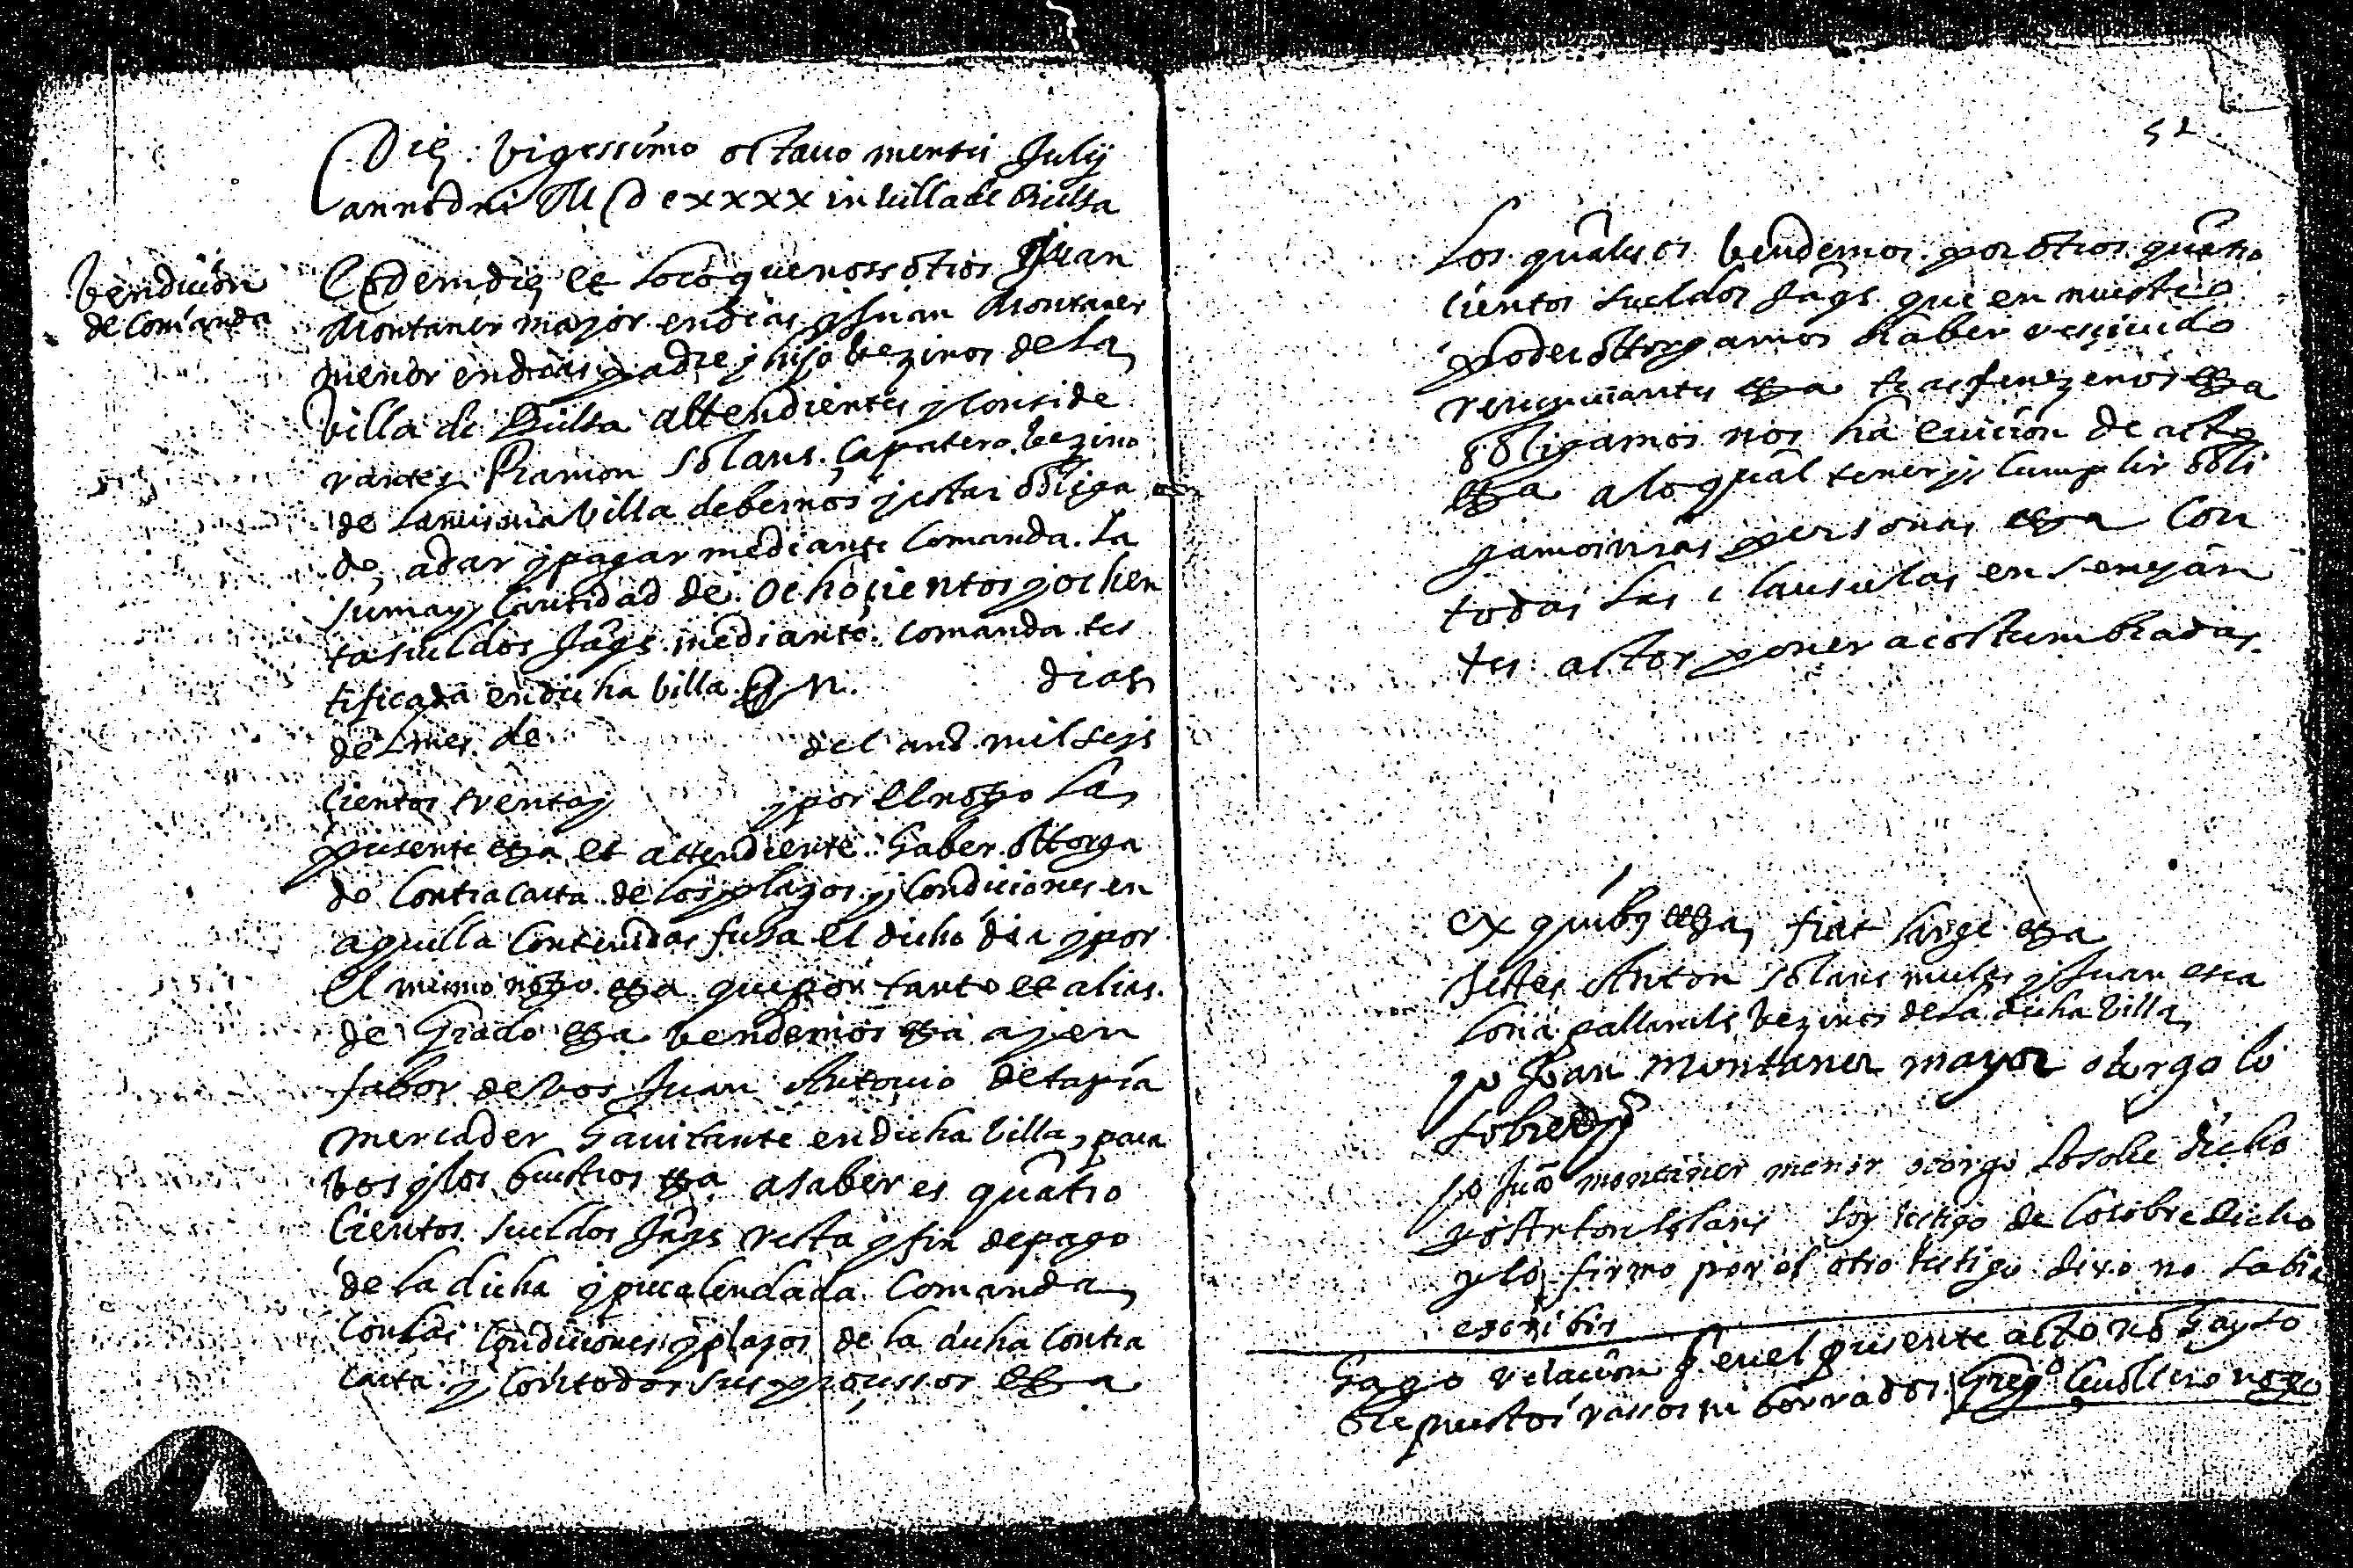 Die vigessimo octavo mensis July
anno dni M DC xxxx in villa de Bielsa
Vendicion
de Comanda
Eodem die et loco que nossotros Juan
Montaner mayor en dias y Juan Montaner
menor en dias padre y hijo vezinos de la
villa de Bielsa attendientes y conside
rantes Ramon Solans çapatero vezino
de la misma villa debernos y estar obliga
do a dar y pagar mediante Comanda la
suma y cantidad de ochocientos y ochen
ta sueldos Jaqs mediante comanda tes
tificada en dicha villa dias
del mes de del año mil seys
cientos trenta y y por el noto la
presente etta et attendiente haber ottorga
do contracarta de los plazos y condiciones en
aquella contenidas fecha el dicho dia y por
el mismo noto etta que por tanto et alias
de grado etta bendemos etta a y en
fabor de vos Juan Antonio de tapia
mercader havitante en dicha villa para
vos y los buestros etta a saber es quatro
cientos sueldos Jaqs resta y fin de pago
de la dicha y precalendada Comanda
con las condiciones y plazos de la dicha contra
carta y con todos sus processos etta
52
Los quales os bendemos por otros quatro
cientos sueldos Jaqs que en nuestro
poder ottorgamos haber resçiuido
renunciantes etta
obligamos nos ha euicion de acto
etta a lo qual tener y cumplir obli
gamos nras personas etta con
todas las clausulas en semejan
tes actos poner acostumbradas
ex quibus etta fiat large etta
Testes Anton Solans y Juan esca
lona vezinos de la dicha villa
yo Juan Montaner mayor otorgo lo
sobredho
yo Juā montaner menor otorgo lo sobre dicho
yo Anton Solans soy testigo de lo sobre dicho
y lo firmo por el otro testigo dixo no sabia
escribir
Hago relacion q en el presente acto no hay so
brepuestos rassos ni borrados Gregº noto